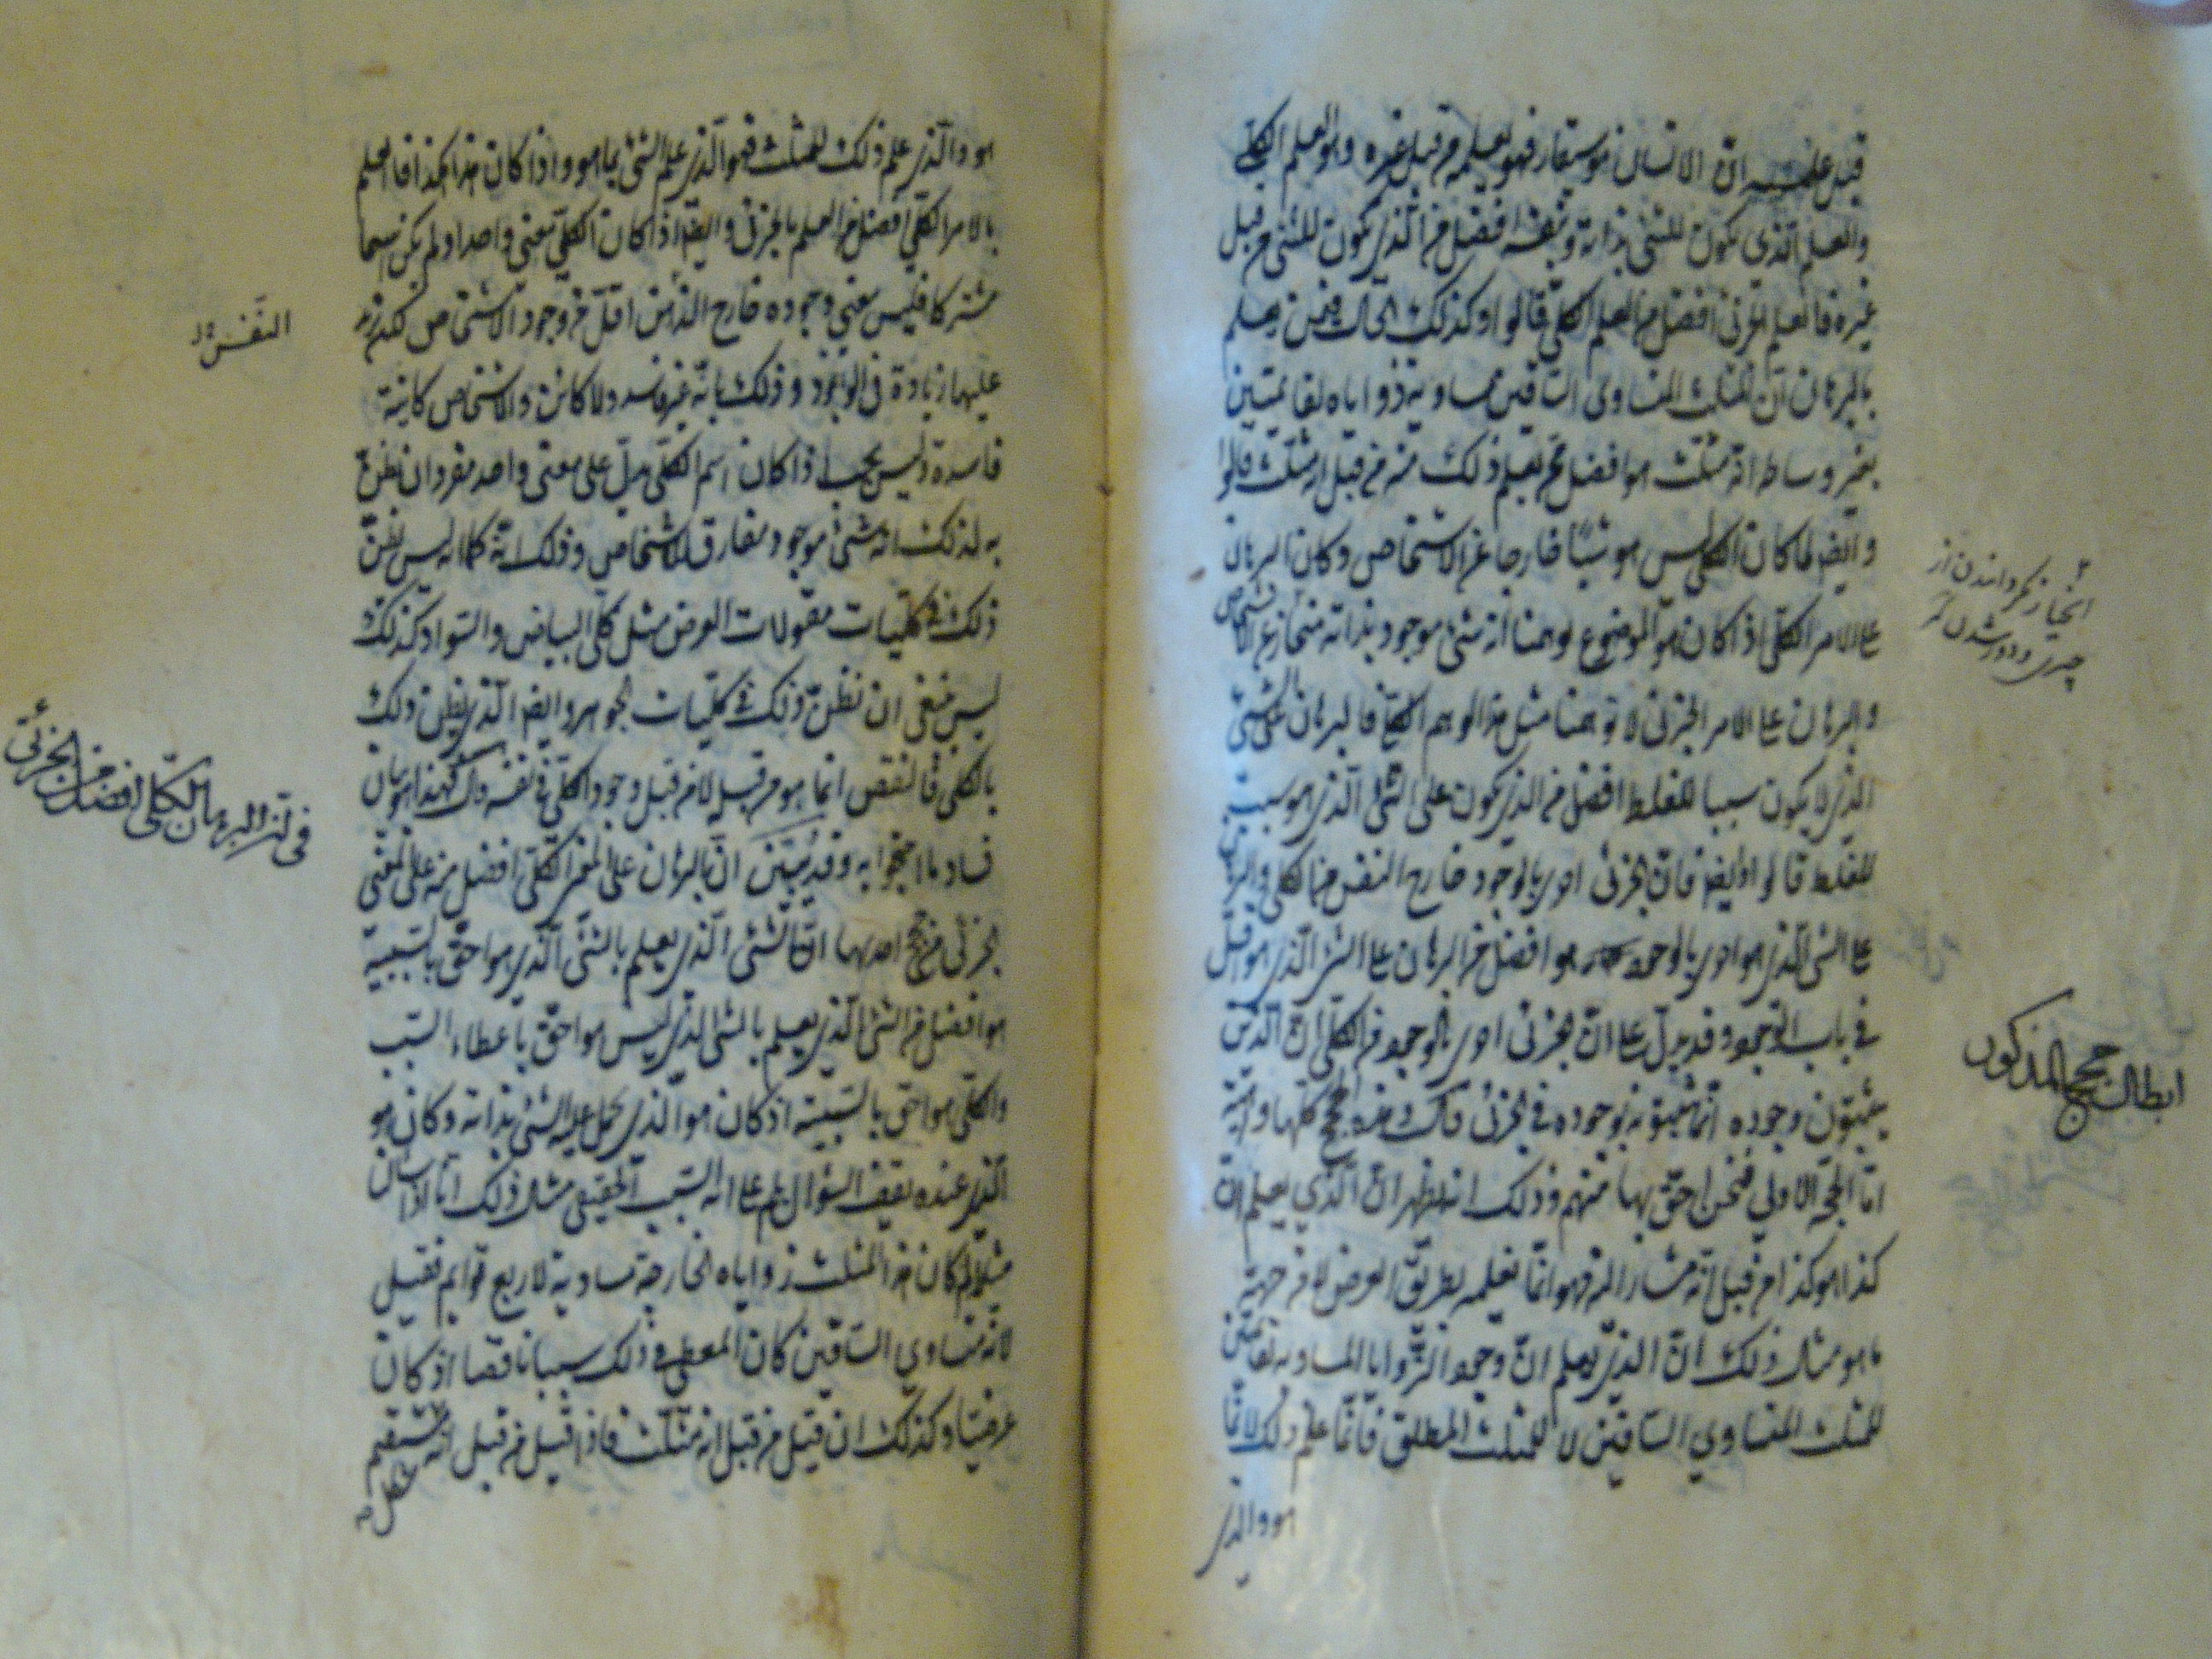 قبل علمه ان الانسان موسيقار فهو يعلمه من قبل غيره وهو العلم الكلي
والعلم الذي يكون للشئ بذاته وبنفسه افضل من الذي يكون للشئ من قبل
غيره فالعلم الجزئي افضل من العلم الكلي قالوا وكذلك الحال فيمن يعلم
بالبرهان ان المثلث المتساوي الساقين مساوية زواياه لقائمتين
بغير وساطة انه مثلث هو افضل ممن يعلم ذلك منه من قبل انه مثلث قالوا
وايضا لما كان الكلي ليس هو شيئا خارجا عن الاشخاص وكان البرهان
على الامر الكلي اذ كان هو الموضوع يوهمنا انه شئ موجود بذاته منحاز عن الاشخاص
والبرهان على الامر الجزئي لا يوهمنا مثل هذا الوهم الكلي فالبرهان على الشئ
الذي لا يكون سببا للغلط افضل من الذي يكون على الشئ الذي هو سبب
للغلط قالوا وايضا فان الجزئي احرى بالوجود خارج النفس من الكلي والبرهان
على الشئ الذي هو احرى بالوجود هو افضل من البرهان على الشئ الذي هو اقل
في باب الوجود وقد يدل على ان الجزئي احرى بالوجود من الكلي ان الذين
يثبتون وجوده انما يثبتونه بوجوده في الجزئي فاك وهذه الحجج كلها واهية
اما الحجة الاولى فنحن احق بها منهم وذلك انه يظهر ان الذي يعلم ان
كذا هو كذا من قبل انه مشار اليه فهو انما يعلمه بطريق العرض لا من جهة
ما هو مثال ذلك ان الذي يعلم ان وجود الزوايا المساوية لقائمتين
للمثلث المتساوي الساقين لا للمثلث المطلق فانما علم ذلك لا بما
هو والذي
ابطال حجج المذكور
هو والذي علم ذلك للمثلث فهو الذي علم الشئ بما هو واذا كان هذا هكذا فالعلم
بالامر الكلي افضل من العلم بالجزئي وايضا اذا كان الكلي بمعنى واحد ولم يكن اسما
مشتركا فليس معنى وجوده خارج الذهن اقل من وجود الاشخاص لكن له
عليها زيادة في الوجود وذلك بانه غير فاسد ولا كائن والاشخاص كاينة
فاسدة وليس يجب اذا كان اسم الكلي يدل على معنى واحد مفرد ان نظن
به لذلك انه شئ موجود مفارق للاشخاص وذلك انه كما انه ليس نظن
ذلك في كليات مقولات العرض مثل كلي البياض والسواد كذلك
ليس ينبغي ان نظن ذلك في كليات الجوهر وايضا الذي يظن ذلك
بالكلي فالنقص انما هو من قبله لا من قبل وجود الكلي في نفسه واك فهذا هو بيان
فساد ما احتجوا به وقد يتبين ان البرهان على المعنى الكلي افضل منه على المعنى
الجزئي من حجج احديها ان الشئ الذي يعلم بالشئ الذي هو احق بالسببية
هو افضل من الشئ الذي يعلم بالشئ الذي ليس هو احق باعطاء السبب
والكلي هو احق بالسببية اذ كان هو الذي يحمل عليه الشئ بذاته وكان هو
الذي عنده يقف السؤال بلم على انه السبب الحقيقي مثال ذلك انا اذا سأل
مثلا لم كان هذا المثلث زواياه الخارجة مساوية لاربع قوايم فقيل
لانه متساوي الساقين كان المعطي في ذلك سببا ناقصا اذ كان
عرضيا وكذلك ان قيل من قبل انه مثلث فاذا قيل من قبل انه مستقيم
النفس
في ان البرهان الكلي افضل من الجزئي